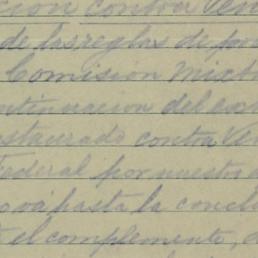 contra Ven
de las reglas de pro
Comisión Mixta
ontinuacion del
staurado contra Ve
Federal por nuestro
ova hasta la concl
el complemento, d